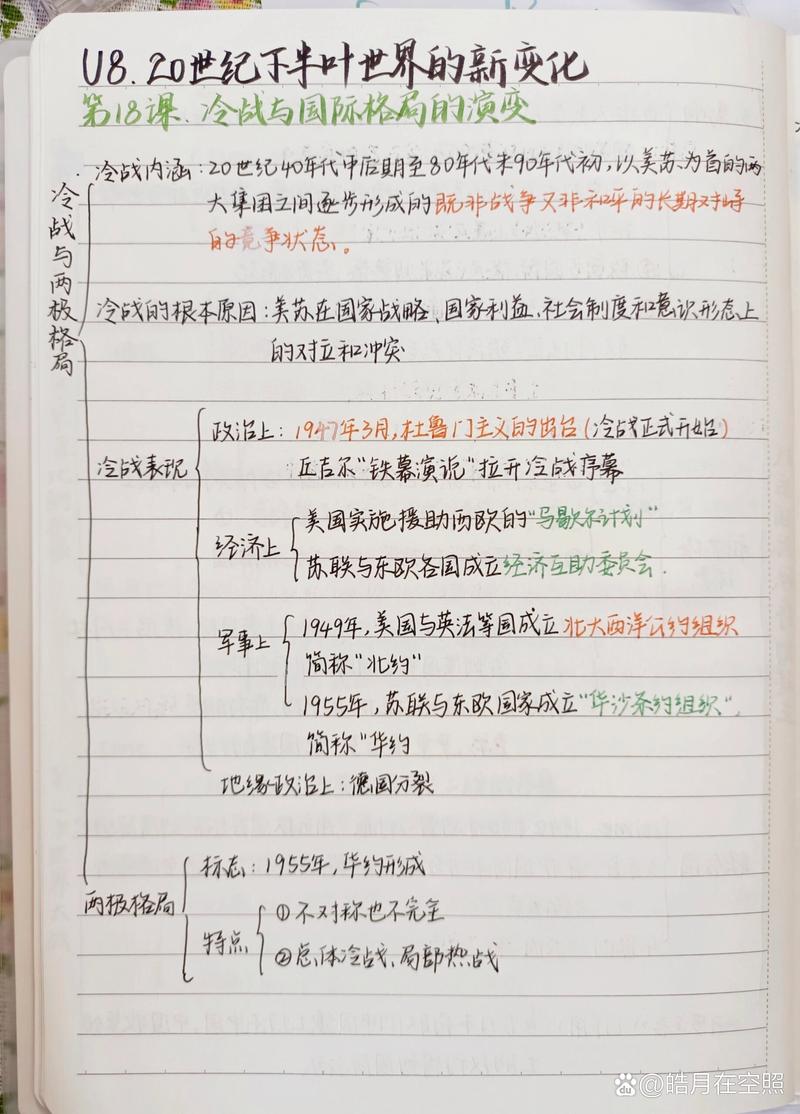 U8.20世纪下半叶世界的新变化
第18课.冷战与国际格局的演变
冷战与两极格局
冷战内涵:20世纪40年代中后期至80年代末90年代初,以美苏为首的两
大集团之间逐步形成的既非战争又非和平的长期对峙
的竞争状态。
冷战的根本原因:美苏在国家战略、国家利益、社会制度和意识形态上
的对立和冲突
冷战表现
政治上:1947年3月,杜鲁门主义的出台(冷战正式开始)
丘吉尔"铁幕演说"拉开冷战序幕
经济上
美国实施援助西欧的"马歇尔计划"
苏联与东欧各国成立经济互助委员会.
军事上
1949年,美国与英法等国成立北大西洋公约组织
简称"北约"
1955年,苏联与东欧国家成立"华沙条约组织",
简称"华约
地缘政治上:德国分裂
两极格局
标志:1955年,华约形成
特点
①不对称也不完全
②总体冷战、局部热战
Bai du @皓月在空照